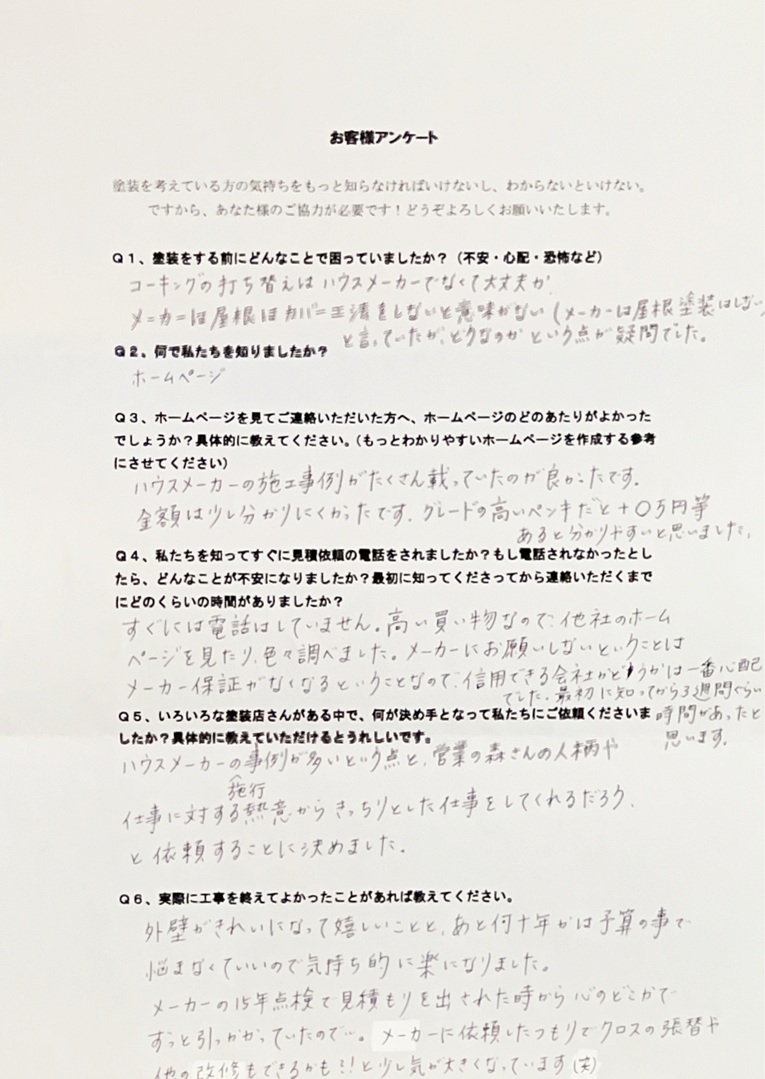 お客様アンケート
塗装を考えている方の気持ちをもっと知らなければいけないし、わからないといけない。
ですから、あなた様のご協力が必要です！どうぞよろしくお願いいたします。
Ｑ１、塗装をする前にどんなことで困っていましたか？（不安・心配・恐怖など）
コーキングの打ち替えはハウスメーカーでなくて大丈夫か
メーカーは屋根はカバー工法をしないと意味がない（メーカーは屋根塗装はしない
と言っていたが、どうなのかという点が疑問でした。
Ｑ２、何で私たちを知りましたか？
ホームページ
Ｑ３、ホームページを見てご連絡いただいた方へ、ホームページのどのあたりがよかった
でしょうか？具体的に教えてください。（もっとわかりやすいホームページを作成する参考
にさせてください）
ハウスメーカーの施工事例がたくさん載っていたのが良かったです。
金額は少し分かりにくかったです。グレードの高いペンキだと＋〇万円等
あると分かりやすいと思いました。
Ｑ４、私たちを知ってすぐに見積依頼の電話をされましたか？もし電話されなかったとし
たら、どんなことが不安になりましたか？最初に知ってくださってから連絡いただくまで
にどのくらいの時間がありましたか？
すぐには電話はしていません。高い買い物なので、他社のホーム
ページを見たり、色々調べました。メーカーにお願いしないということは
メーカー保証がなくなるということなので、信用できる会社かどうかは一番心配
でした。最初に知ってから3週間ぐらい
時間があったと
思います。
Ｑ５、いろいろな塗装店さんがある中で、何が決め手となって私たちにご依頼くださいま
したか？具体的に教えていただけるとうれしいです。
ハウスメーカーの事例が多いという点と、営業の森さんの人柄や
施行
仕事に対する熱意からきっちりとした仕事をしてくれるだろう、
と依頼することに決めました。
Ｑ６、実際に工事を終えてよかったことがあれば教えてください。
外壁がきれいになって嬉しいことと、あと何十年かは予算の事で
悩まなくていいので気持ち的に楽になりました。
メーカーの15年点検で見積もりを出された時から心のどこかで
ずっと引っかかっていたので…。メーカーに依頼したつもりでクロスの張替や
他の改修もできるかも！！と少し気が大きくなっています（笑）